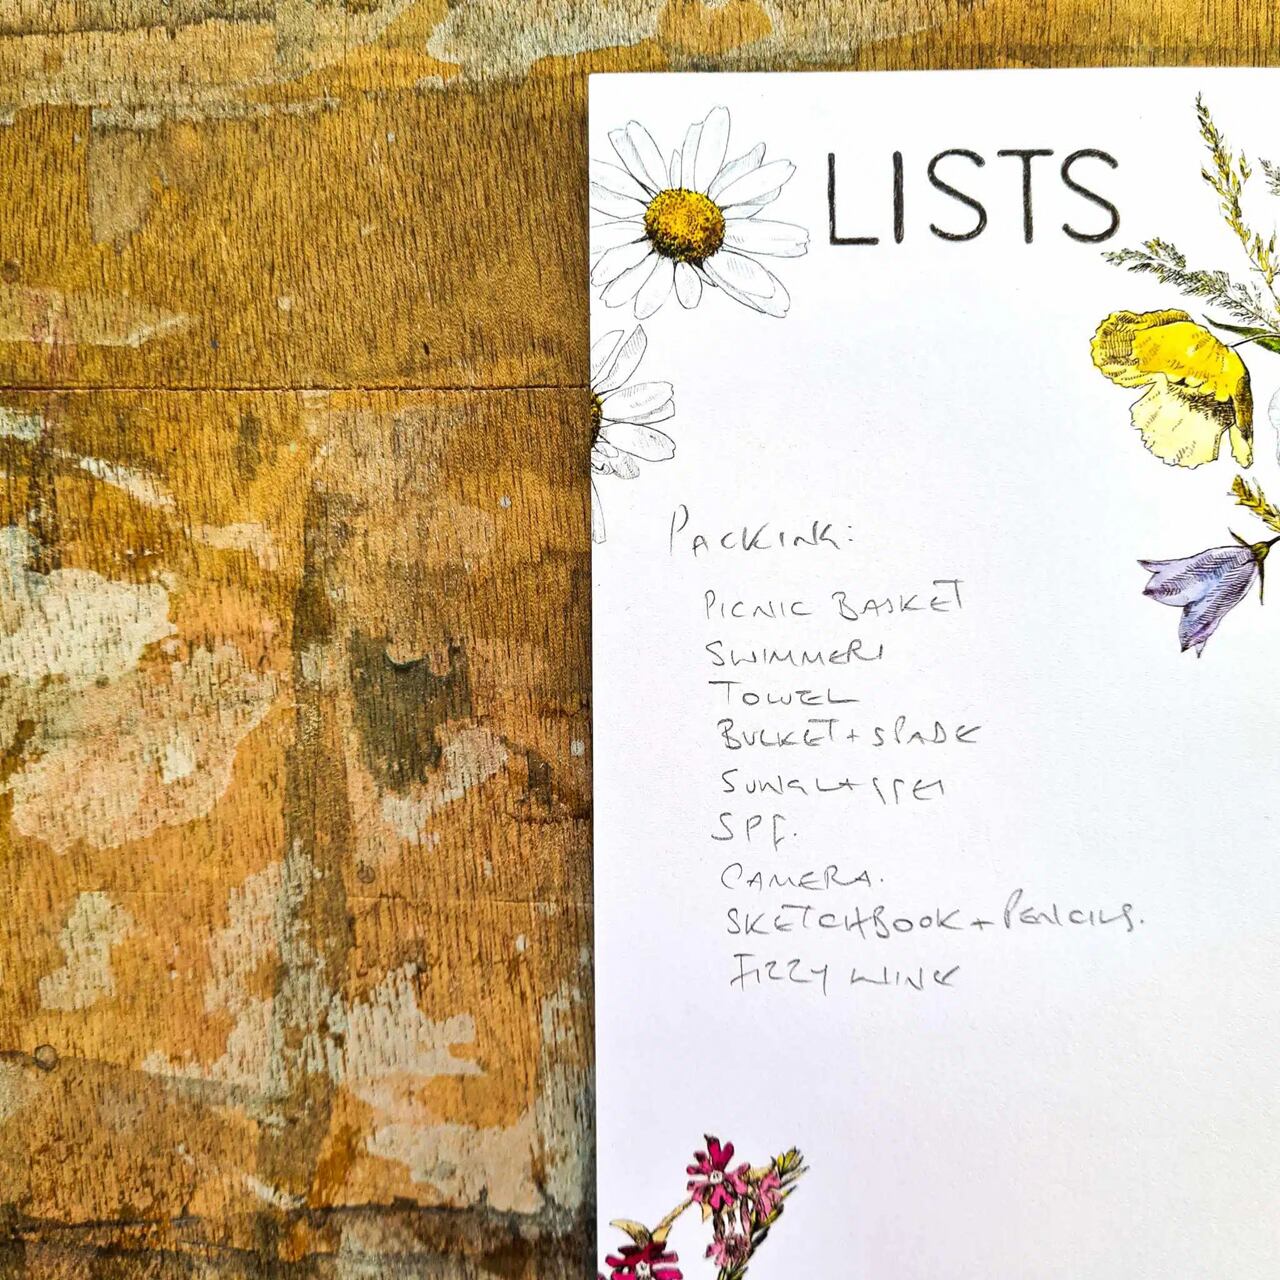 LISTS
PACKING:
PICNIC BASKET
SWIMMERS
TOWEL
BUCKET + SPADE
SUNGLASSES
SPF.
CAMERA.
SKETCHBOOK + PENCILS.
FIZZY WINE